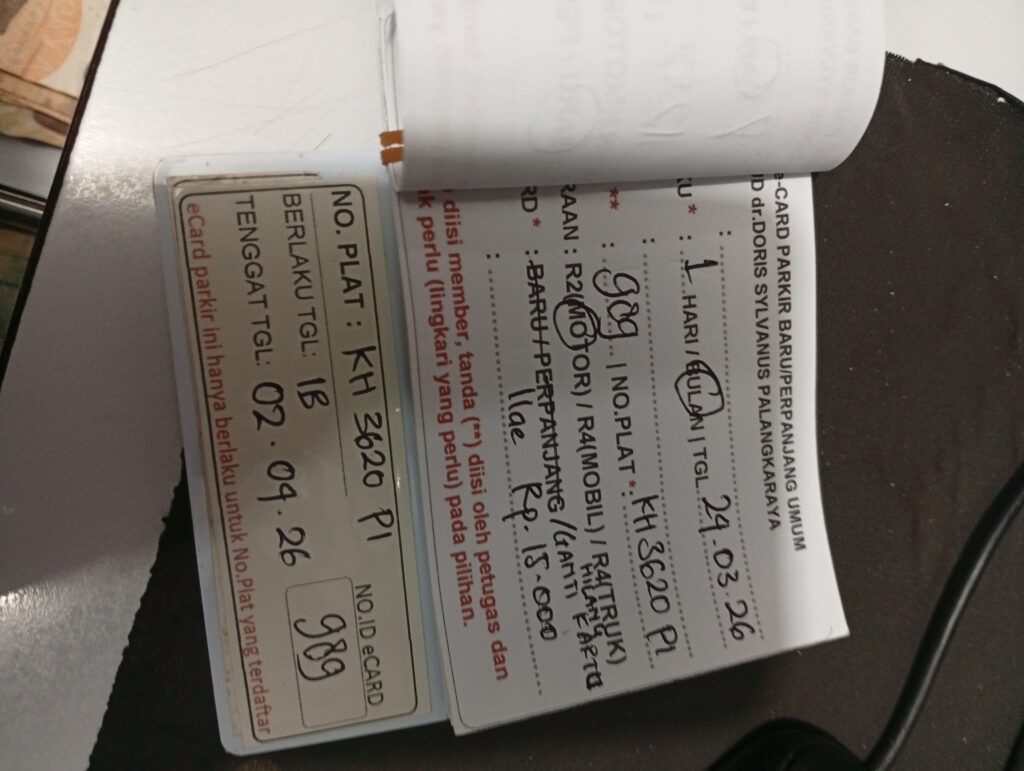 e-CARD PARKIR BARU/PERPANJANG UMUM
dr.DORIS SYLVANUS PALANGKARAYA
:
* : 1 HARI / BULAN | TGL. 24.03.26
:
** : 989 | NO.PLAT *: KH 3620 PI
RAAN : R2(MOTOR) / R4(MOBIL) / R4(TRUK)
RD * : BARU / PERPANJANG / GANTI HILANG KARTU
: Rp. 15.000
diisi member, tanda (**) diisi oleh petugas dan
k perlu (lingkari yang perlu) pada pilihan.
NO. PLAT : KH 3620 PI
NO.ID eCARD
BERLAKU TGL: 1B
989
TENGGAT TGL: 02.09.26
eCard parkir ini hanya berlaku untuk No.Plat yang terdaftar